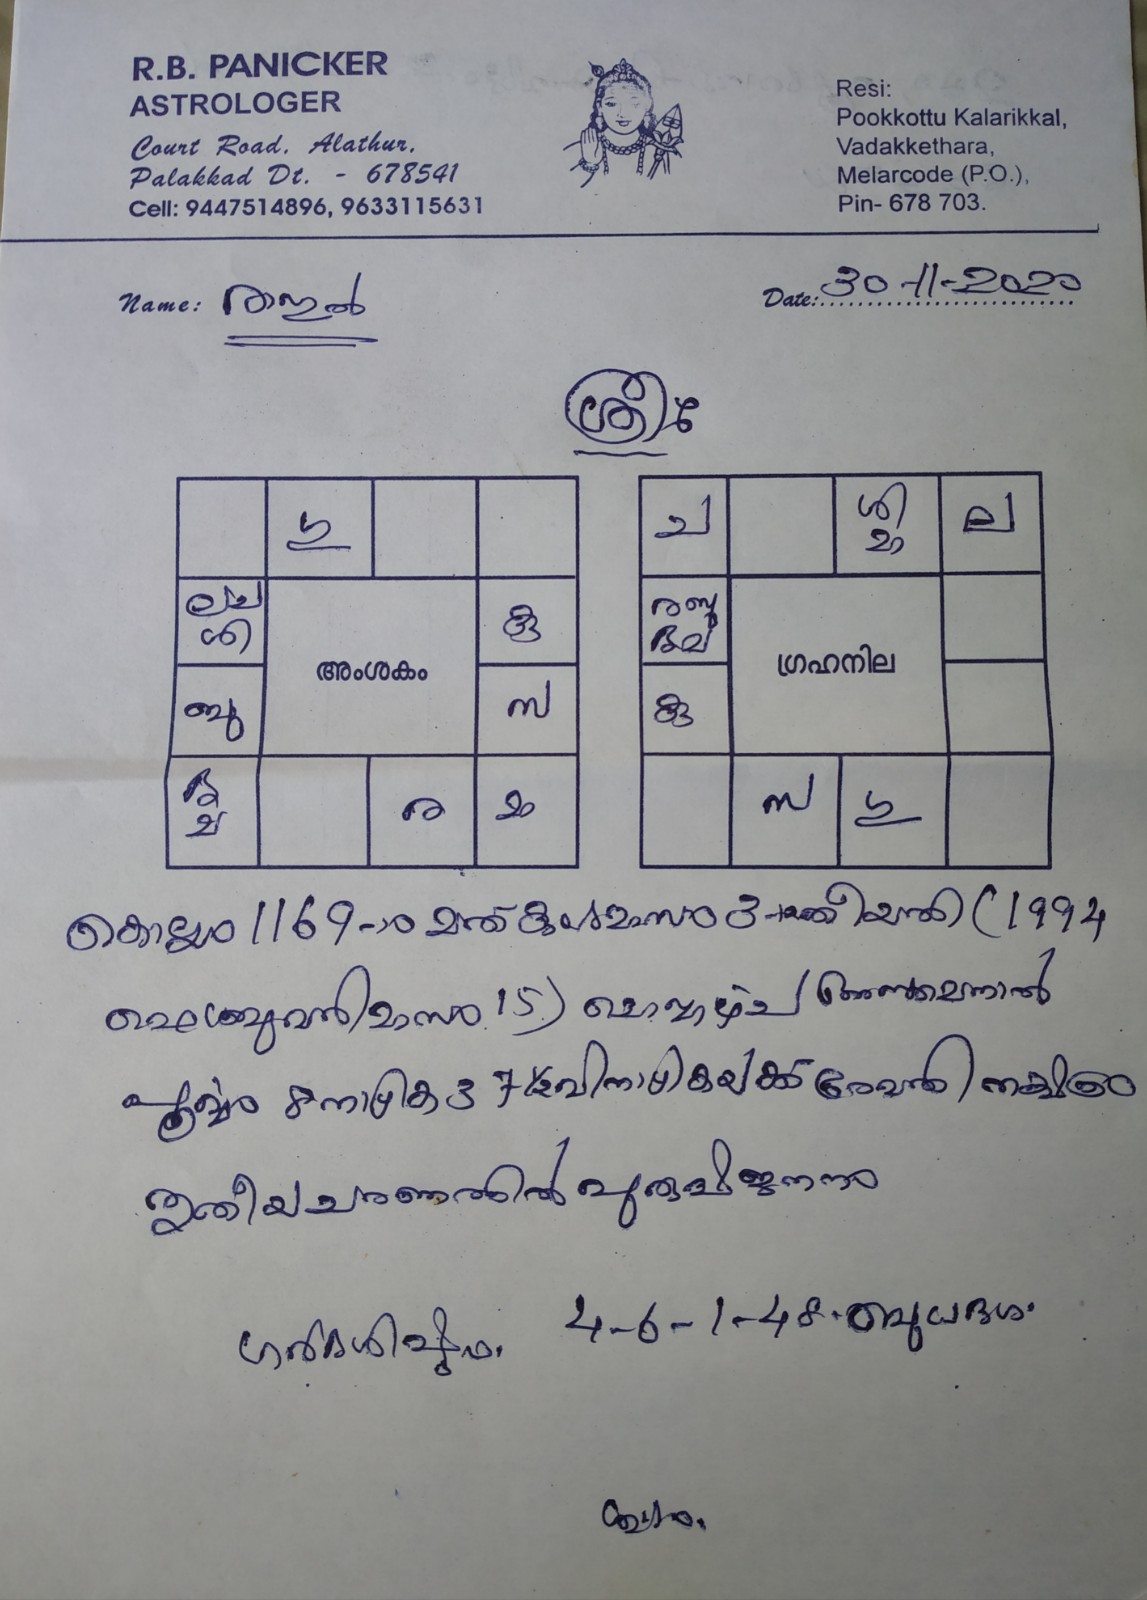 R.B. PANICKER
ASTROLOGER
Court Road, Alathur,
Palakkad Dt. - 678541
Cell: 9447514896, 9633115631
Resi:
Pookkottu Kalarikkal,
Vadakkethara,
Melarcode (P.O.),
Pin- 678 703.
Name: രാഹുൽ
Date: 30-11-2020
ശ്രീഃ
ഗു
ലച
ശി
കു
അംശകം
ബു
സ
ര
മ
ച
ശി
മാ
ല
ഗ്രഹനില
കു
സ
ഗു
കൊല്ലം 1169-ാം മത് കുംഭമാസം 3-ാം തീയതി (1994
ഫെബ്രുവരി മാസം 15) ചൊവ്വാഴ്ച
നാഴിക 37½ വിനാഴികയ്ക്ക് രേവതി നക്ഷത്രം
തൃതീയ ചരണത്തിൽ പുരുഷജനനം
ഗർഭശിഷ്ടം. 4-6-1-48. ബുധദശ.
ശുഭം.